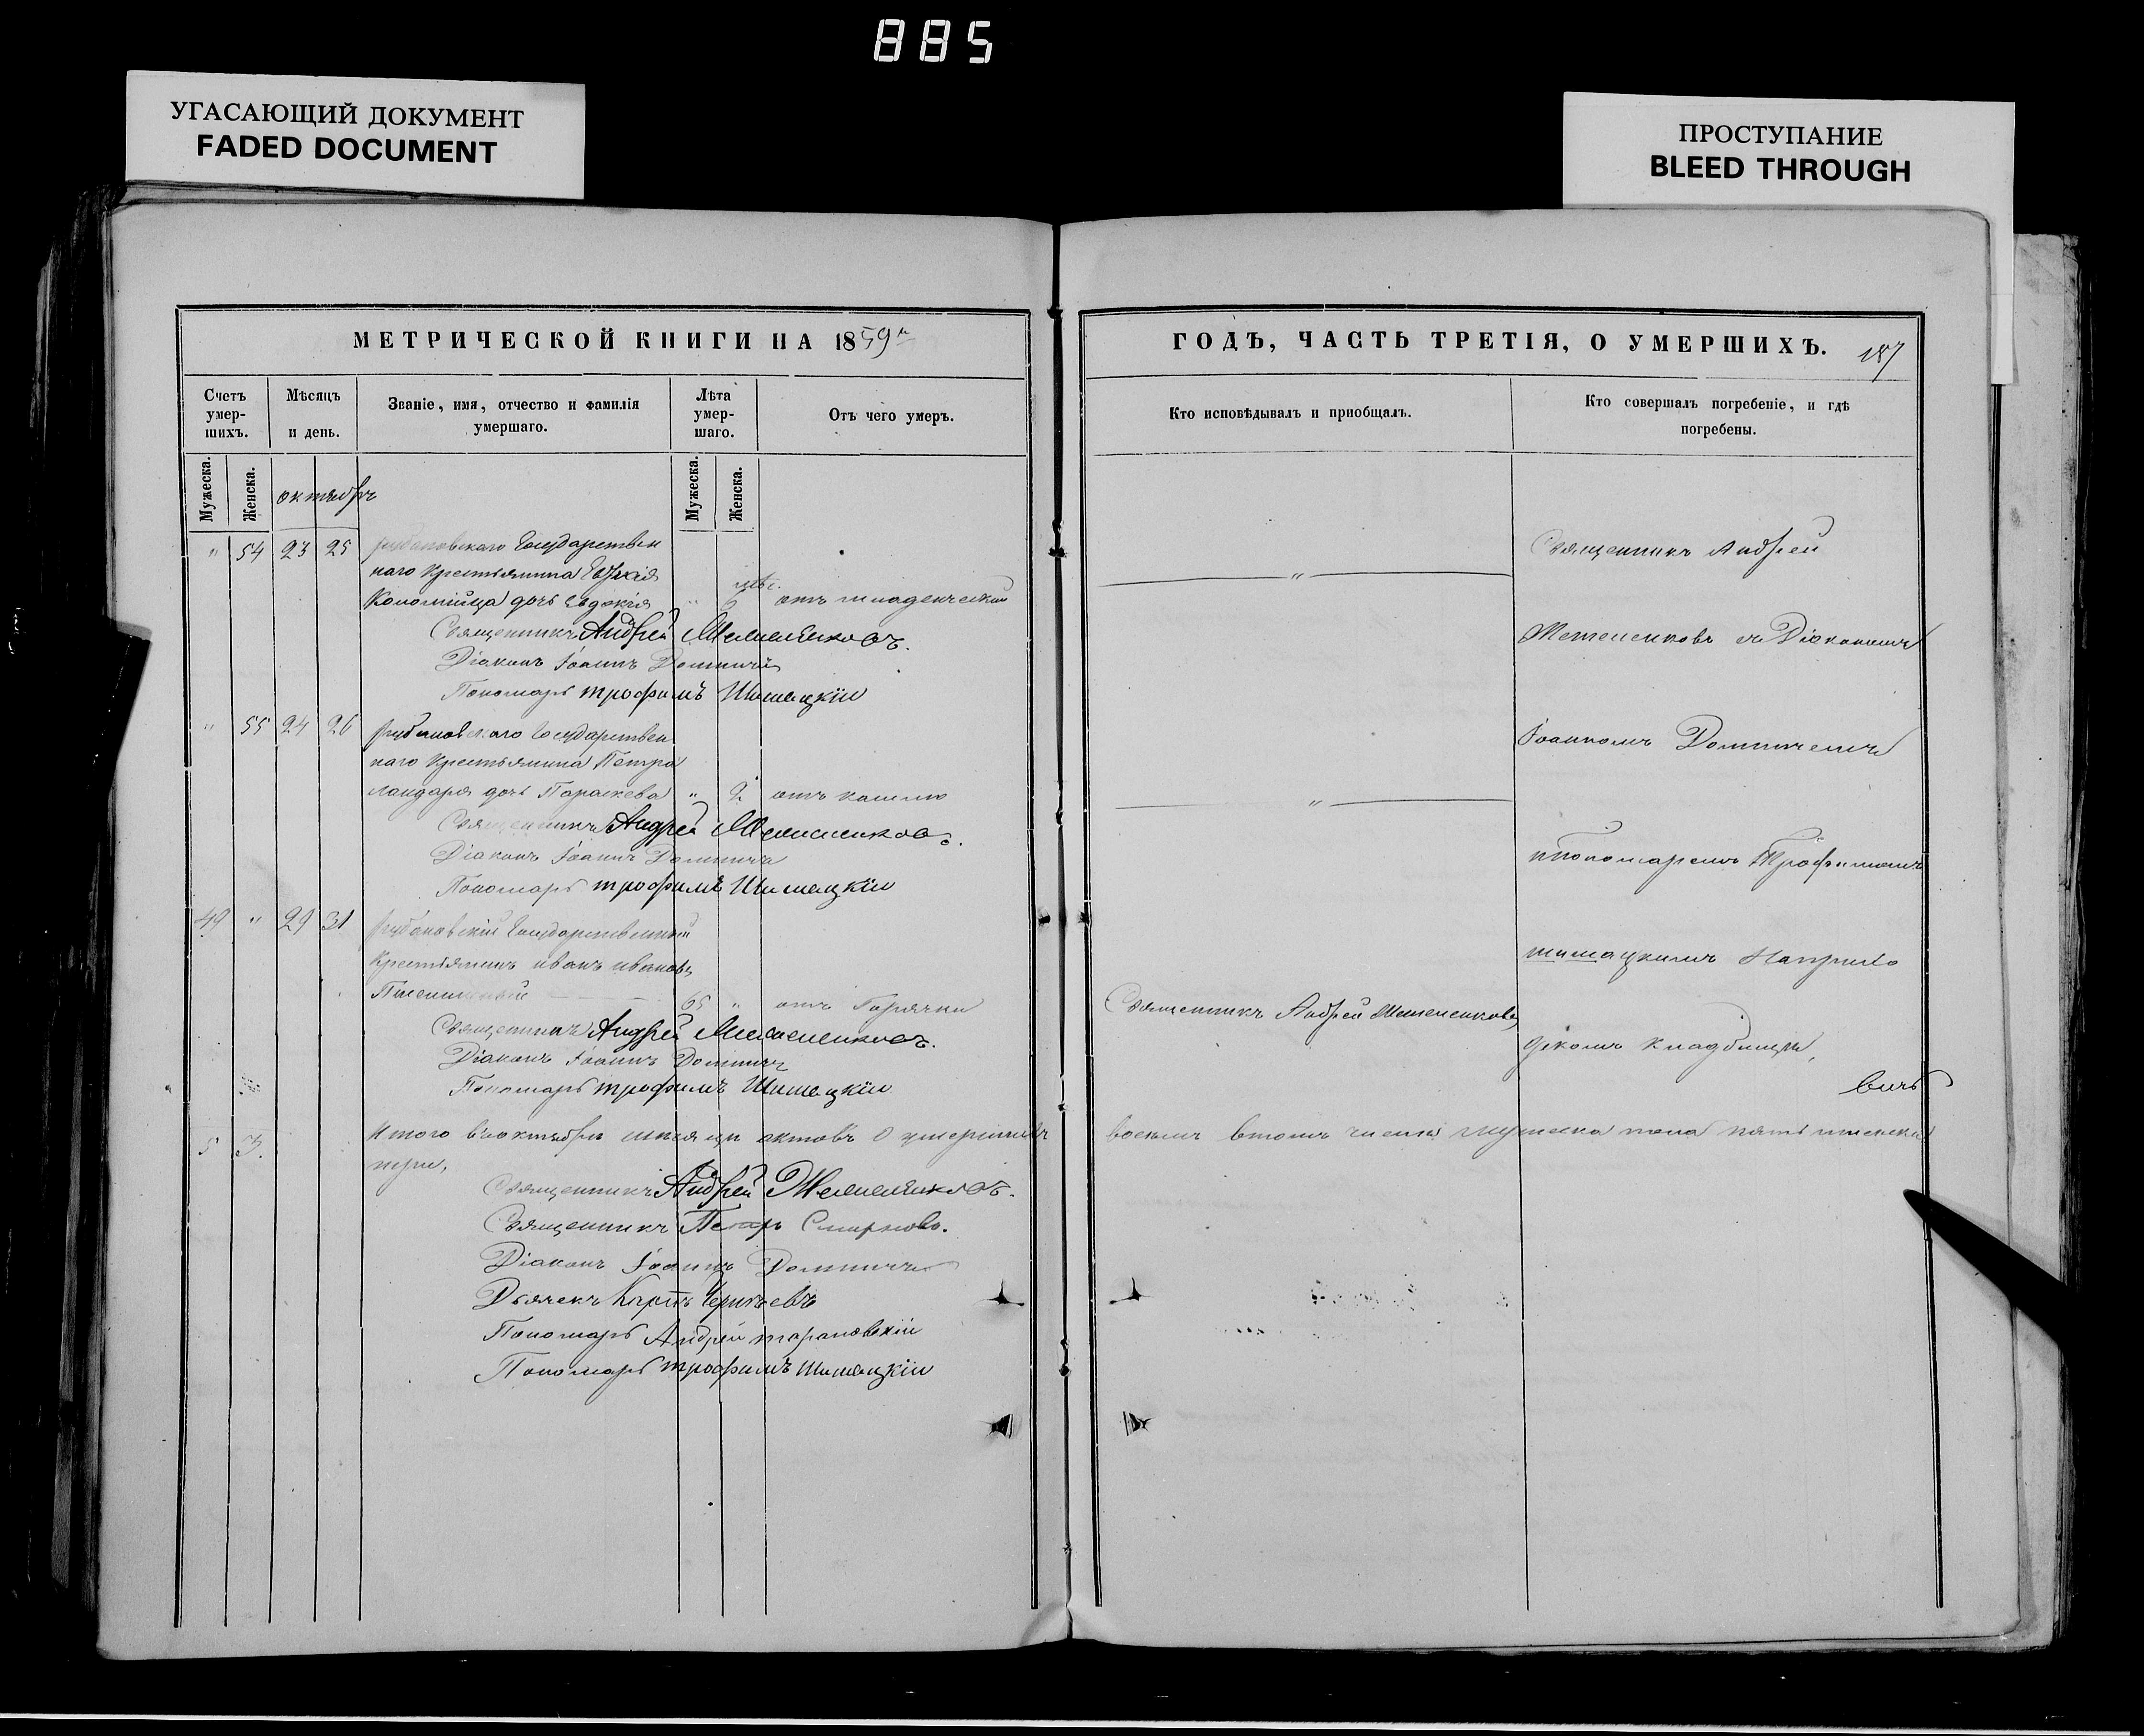 885
УГАСАЮЩИЙ ДОКУМЕНТ
FADED DOCUMENT
ПРОСТУПАНИЕ
BLEED THROUGH
МЕТРИЧЕСКОЙ КНИГИ НА 1859
ГОДЪ, ЧАСТЬ ТРЕТІЯ, О УМЕРШИХЪ.
187
Счетъ умер-шихъ.
Мѣсяцъ и день.
Званіе, имя, отчество и фамилія умершаго.
Лѣта умер-шаго.
Отъ чего умеръ.
Кто исповѣдывалъ и пріобщалъ.
Кто совершалъ погребеніе, и гдѣ погребены.
Мужеска.
Женска.
октябрь
Мужеска.
Женска.
" 54 23 25 рубановскаго Государствен
наго Крестьянина
Коломійца дочь Евдокія " 6 мѣс. отъ младенческой
Священникъ Андрей
Діаконъ Іоаннъ
Пономарь трофимъ Шимацкій
" 55 24 26 рубановскаго Государствен
наго Крестьянина Петра
Ландаря дочь Параскева " 2 отъ кашлю
Священникъ Андрей
Діаконъ Іоаннъ
Пономарь трофимъ Шимацкій
49 " 29 31 рубановскій Государственный
Крестьянинъ иванъ ивановъ
65 " отъ Горячки
Священникъ Андрей
Діаконъ Іоаннъ
Пономарь трофимъ Шимацкій
5 3. Итого въ октябрѣ мѣсяцѣ актовъ О умершихъ
три,
Священникъ Андрей
Священникъ Петръ Смирновъ.
Діаконъ Іоаннъ
Дьячекъ Карпъ
Пономарь Андрей тарановскій
Пономарь трофимъ Шимацкій
"
"
Священникъ Андрей
Священникъ Андрей
съ Діакономъ
Іоанномъ
и Пономаремъ Трофимомъ
шимацкимъ На приходскомъ кладбищѣ,
восемь втомъ числѣ мужеска пола пять женска